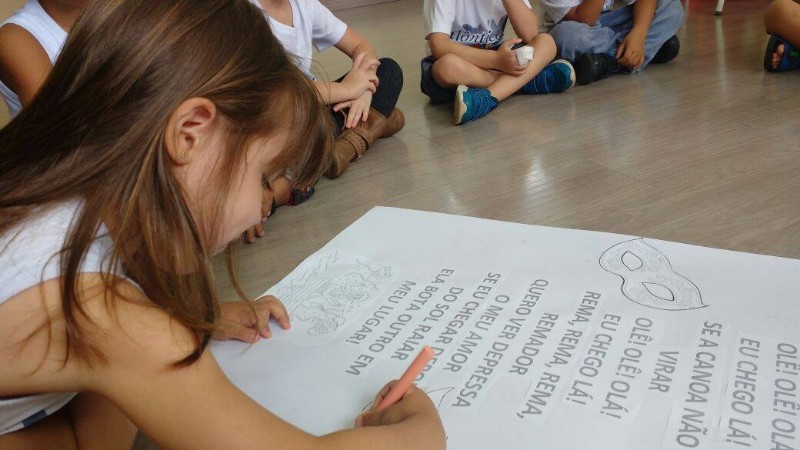 OLÊ! OLÊ! OLÁ
EU CHEGO LÁ!
SE A CANOA NÃO
VIRAR
OLÊ! OLÊ! OLÁ!
EU CHEGO LÁ!
REMA, REMA, REMA,
REMADOR
QUERO VER DEPRESSA
O MEU AMOR
SE EU CHEGAR
DO SOL RAIAR
ELA BOTA OUTRO EM
MEU LUGAR!